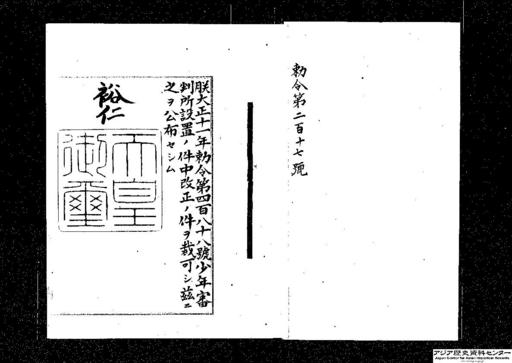 勅令第二百十七號
朕大正十一年勅令第四百八十八號少年審
判所設置ノ件中改正ノ件ヲ裁可シ茲ニ
之ヲ公布セシム
裕仁
天皇
御璽
アジア歴史資料センター
Japan Center for Asian Historical Records